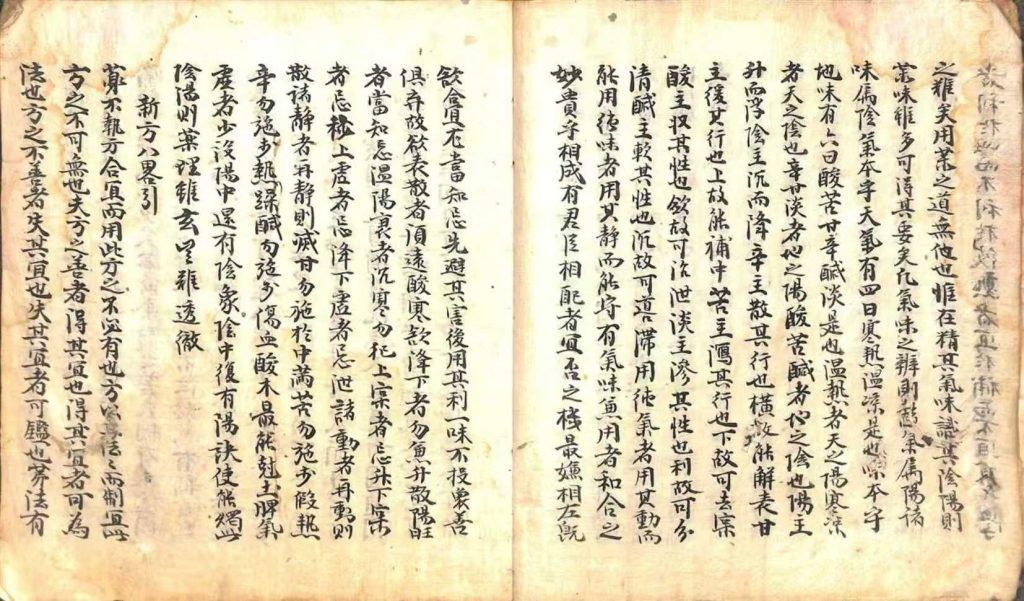 之難矣用藥之道無他也惟在精其氣味識其陰陽則
藥味雖多可得其要矣凡氣味之辨則諸氣屬陽諸
味屬陰氣本乎天氣有四曰寒熱溫涼是也味本乎
地味有六曰酸苦甘辛鹹淡是也溫熱者天之陽寒涼
者天之陰也辛甘淡者地之陽酸苦鹹者地之陰也陽主
升而浮陰主沉而降辛主散其行也橫故能解表甘
主緩其行也上故能補中苦主瀉其行也下故可去實
酸主収其性也歛故可治泄淡主滲其性也利故可分
清鹹主軟其性也沉故可導滯用純氣者用其動而
能用純味者用其靜而能守有氣味兼用者和合之
妙貴乎相成有君臣相配者宜否之機最嫌相左既
欲合宜尤當知忌先避其害後用其利一味不投衆善
俱弃故欲表散者須遠酸寒欲降下者勿兼升散陽旺
者當知忌溫陽衰者沉寒勿犯上實者忌升下實
者忌秘上虛者忌降下虛者忌泄諸動者再動則
散諸靜者再靜則滅甘勿施於中滿苦勿施於假熱
辛勿施於熱躁鹹勿施於傷血酸木最能尅土脾氣
虛者少設陽中還有陰象陰中復有陽訣使能燭此
陰陽則藥理雖玄豈難透徹
新方八畧引
藥不執方合宜而用此方之不必有也方以立法法以制宜此
方之不可無也夫方之善者得其宜也得其宜者可為
法也方之不善者失其宜也失其宜者可鑑也第法有